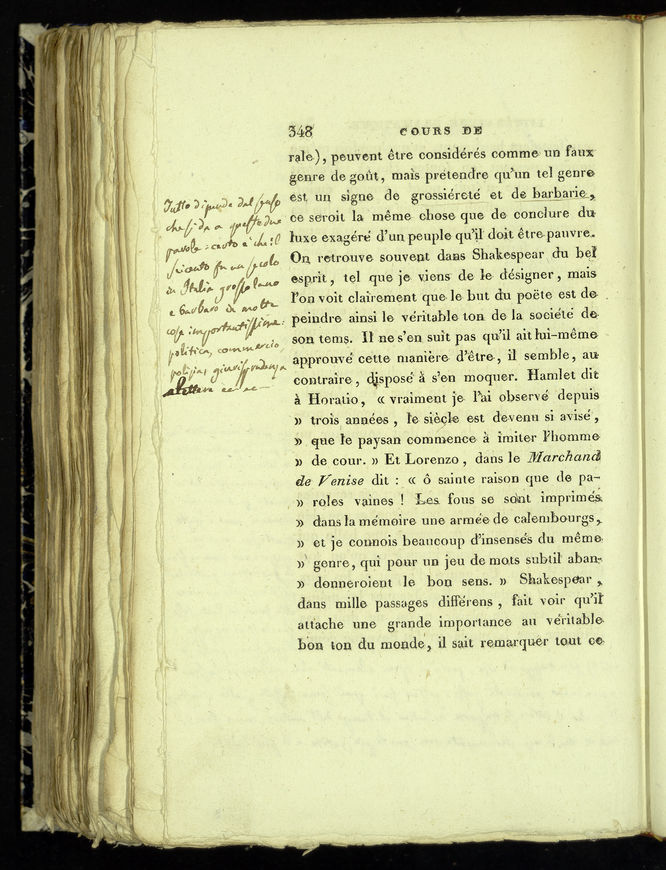 348 COURS DE
rale), peuvent être considérés comme un faux
genre de goût, mais prétendre qu'un tel genre
est un signe de grossiéreté et de barbarie,
ce seroit la même chose que de conclure du
luxe exagéré d'un peuple qu'il doit être pauvre.
On retrouve souvent dans Shakespear du bel
esprit, tel que je viens de le désigner, mais
l'on voit clairement que le but du poëte est de
peindre ainsi le véritable ton de la société de
son tems. Il ne s'en suit pas qu'il ait lui-même
approuvé cette manière d'être, il semble, au
contraire, disposé à s'en moquer. Hamlet dit
à Horatio, « vraiment je l'ai observé depuis
» trois années, le siècle est devenu si avisé,
» que le paysan commence à imiter l'homme
» de cour. » Et Lorenzo, dans le Marchand
de Venise dit : « ô sainte raison que de pa-
» roles vaines ! Les fous se sont imprimés
» dans la mémoire une armée de calembourgs,
» et je connois beaucoup d'insensés du même
» genre, qui pour un jeu de mots subtil aban-
» donneroient le bon sens. » Shakespear,
dans mille passages différens, fait voir qu'il
attache une grande importance au véritable
bon ton du monde, il sait remarquer tout ce
Tutto dipende dal senso
che si da a queste due
parole: certo è che il
seicento fu un secolo
in Italia grossolano
e barbaro in molte
cose importantissime:
politica, commercio,
polizia, giurisprudenza
e lettere ec. ec.